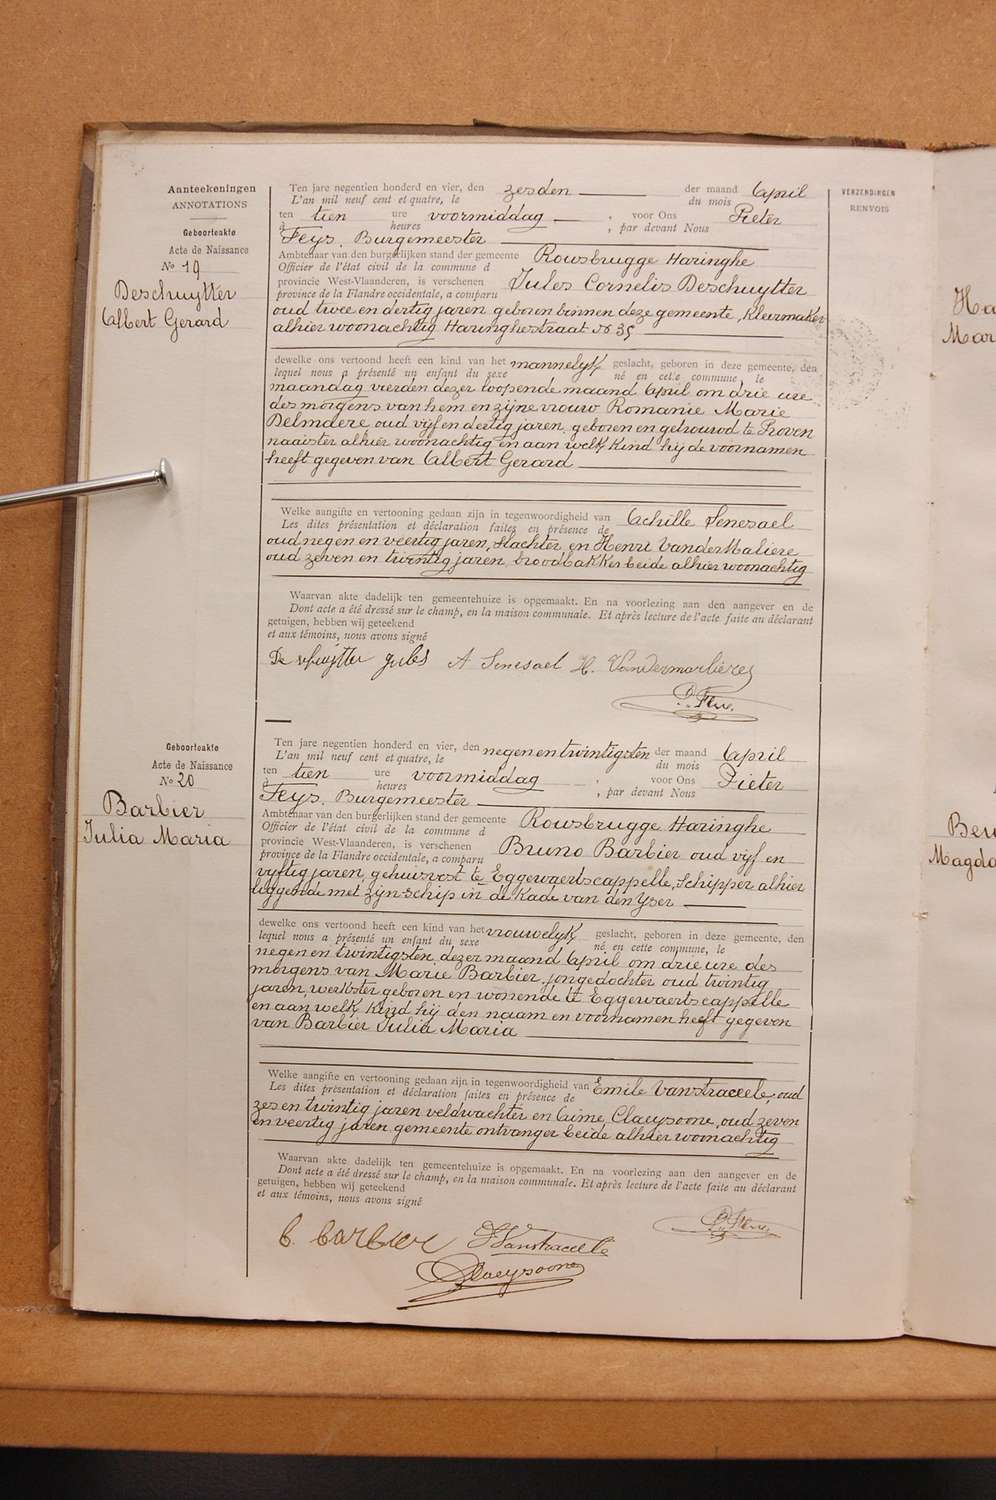 Aanteekeningen
ANNOTATIONS
Geboorteakte
Acte de Naissance
No 19
Deschuytter
Albert Gerard
Ten jare negentien honderd en vier, den zesden der maand April
L'an mil neuf cent et quatre, le du mois
ten tien ure voormiddag , voor Ons Pieter
à heures , par devant Nous
Feys, Burgemeester
Ambtenaar van den burgerlijken stand der gemeente Rousbrugge Haringhe
Officier de l'état civil de la commune d
provincie West-Vlaanderen, is verschenen Jules Cornelis Deschuytter
province de la Flandre occidentale, a comparu
oud twee en dertig jaren geboren binnen deze gemeente, kleermaker
alhier woonachtig Haringhestraat No 35
dewelke ons vertoond heeft een kind van het mannelyk geslacht, geboren in deze gemeente, den
lequel nous a présenté un enfant du sexe né en cette commune, le
maandag vierden dezer loopende maand April om drie ure
des morgens van hem en zijne vrouw Romanie Marie
Delmaere oud vijf en dertig jaren, geboren en getrouwd te Proven
naaister alhier woonachtig en aan welk kind hij de voornamen
heeft gegeven van Albert Gerard
Welke aangifte en vertooning gedaan zijn in tegenwoordigheid van Achille Senesael
Les dites présentation et déclaration faites en présence de
oud negen en veertig jaren, slachter en Henri VanderMaliere
oud zeven en twintig jaren, broodbakker beide alhier woonachtig
Waarvan akte dadelijk ten gemeentehuize is opgemaakt. En na voorlezing aan den aangever en de
Dont acte a été dressé sur le champ, en la maison communale. Et après lecture de l'acte faite au déclarant
getuigen, hebben wij geteekend
et aux témoins, nous avons signé
De schuytter jules A Senesael H. Vandermarlieres
P. Feys.
Geboorteakte
Acte de Naissance
No 20
Barbier
Julia Maria
Ten jare negentien honderd en vier, den negen en twintigsten der maand April
L'an mil neuf cent et quatre, le du mois
ten tien ure voormiddag , voor Ons Pieter
à heures , par devant Nous
Feys, Burgemeester
Ambtenaar van den burgerlijken stand der gemeente Rousbrugge Haringhe
Officier de l'état civil de la commune d
provincie West-Vlaanderen, is verschenen Bruno Barbier oud vijf en
province de la Flandre occidentale, a comparu
vyftig jaren, gehuisvest te Eggewaertscappelle, Schipper alhier
liggende met zijn schip in de Kade van den Yser
dewelke ons vertoond heeft een kind van het vrouwelyk geslacht, geboren in deze gemeente, den
lequel nous a présenté un enfant du sexe né en cette commune, le
negen en twintigsten dezer maand April om drie ure des
morgens van Marie Barbier, jongedochter oud twintig
jaren, werkster geboren en wonende te Eggewaertscappelle
en aan welk kind hij den naam en voornamen heeft gegeven
van Barbier Julia Maria
Welke aangifte en vertooning gedaan zijn in tegenwoordigheid van Emile Vanstraceele, oud
Les dites présentation et déclaration faites en présence de
zes en twintig jaren veldwachter en Claeysoone, oud zeven
en veertig jaren gemeente ontvanger beide alhier woonachtig
Waarvan akte dadelijk ten gemeentehuize is opgemaakt. En na voorlezing aan den aangever en de
Dont acte a été dressé sur le champ, en la maison communale. Et après lecture de l'acte faite au déclarant
getuigen, hebben wij geteekend
et aux témoins, nous avons signé
P. Feys.
b. barbier Vanstraceele
Claeysoone
VERZENDINGEN
RENVOIS